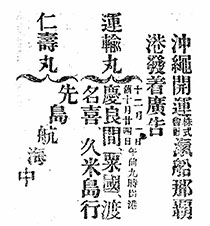 沖繩開運株式會社滊船那覇
港發着廣告
運輸丸
十二月 日
舊十月廿四日午前九時出港
慶良間、粟國、渡
名喜、久米島行
仁壽丸
先島航海中